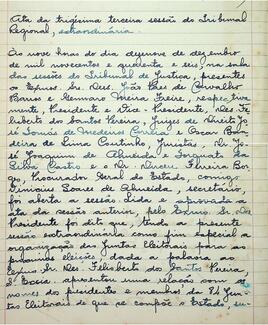 Ata da trigesima terceira sessão do Tribunal
Regional, extraordinária.
Às nove horas do dia dezenove de dezembro
de mil novecentos e quarenta e seis, na sala
das sessões do Tribunal de Justiça, presentes
os Exmos. Srs. Des. João Paes de Carvalho
Barros e Gennaro Freire, respectiva-
mente, Presidente e Vice-Presidente, Des. Fe-
lisberto dos Santos Pereira, Juizes de Direito Jo
Tomás de Medeiros Correia e Oscar
de Lima Coutinho, Juristas, Drs. Jo
Joaquim de Almeida e Torquato
Castro e o Dr. Ferreira Bor-
ges, Procurador Geral do Estado, comigo
Vinicius Soares de Almeida, secretário,
foi aberta a sessão. Lida e aprovada a
ata da sessão anterior, pelo Exmo. Sr. Des.
Presidente foi dito que, tendo a presente
sessão extraordinária como fim especial a
organização das Juntas Eleitorais para as
proximas eleições, dada a palavra ao
Exmo. Sr. Des. Felisberto dos Santos Pereira,
S. Excia. apresentou uma relação com os
nomes dos presidentes e membros das Jun
tas Eleitorais de que se compõe o Estado,